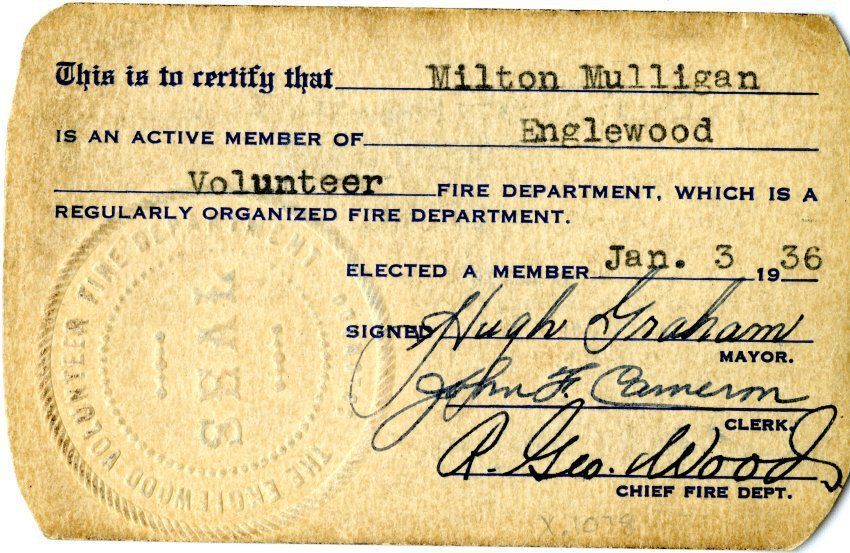 This is to certify that Milton Mulligan
IS AN ACTIVE MEMBER OF Englewood
Volunteer FIRE DEPARTMENT, WHICH IS A
REGULARLY ORGANIZED FIRE DEPARTMENT.
ELECTED A MEMBER Jan. 3 1936
SIGNED Hugh Graham
MAYOR.
John F. Cameron
CLERK.
R. Geo. Wood
CHIEF FIRE DEPT.
THE ENGLEWOOD VOLUNTEER FIRE DEPARTMENT
SEAL
X.1078